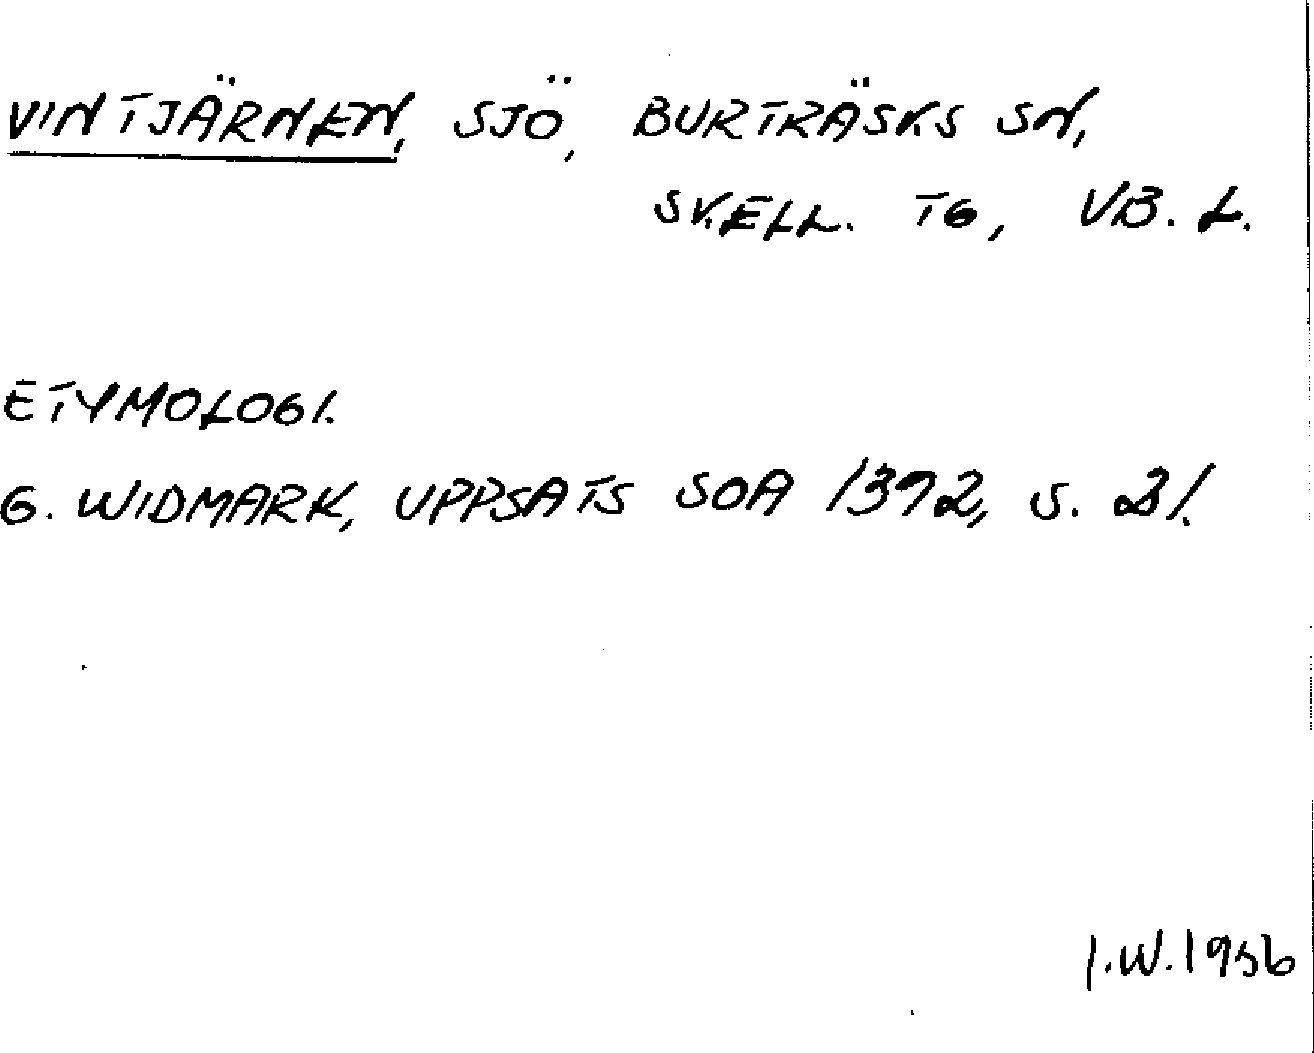 VINTJÄRNEN, SJÖ, BURTRÄSKS SN,
SKELL. TG, VB. L.
ETYMOLOGI.
G. WIDMARK, UPPSATS SOA 1372, S. 21.
I.W. 1956